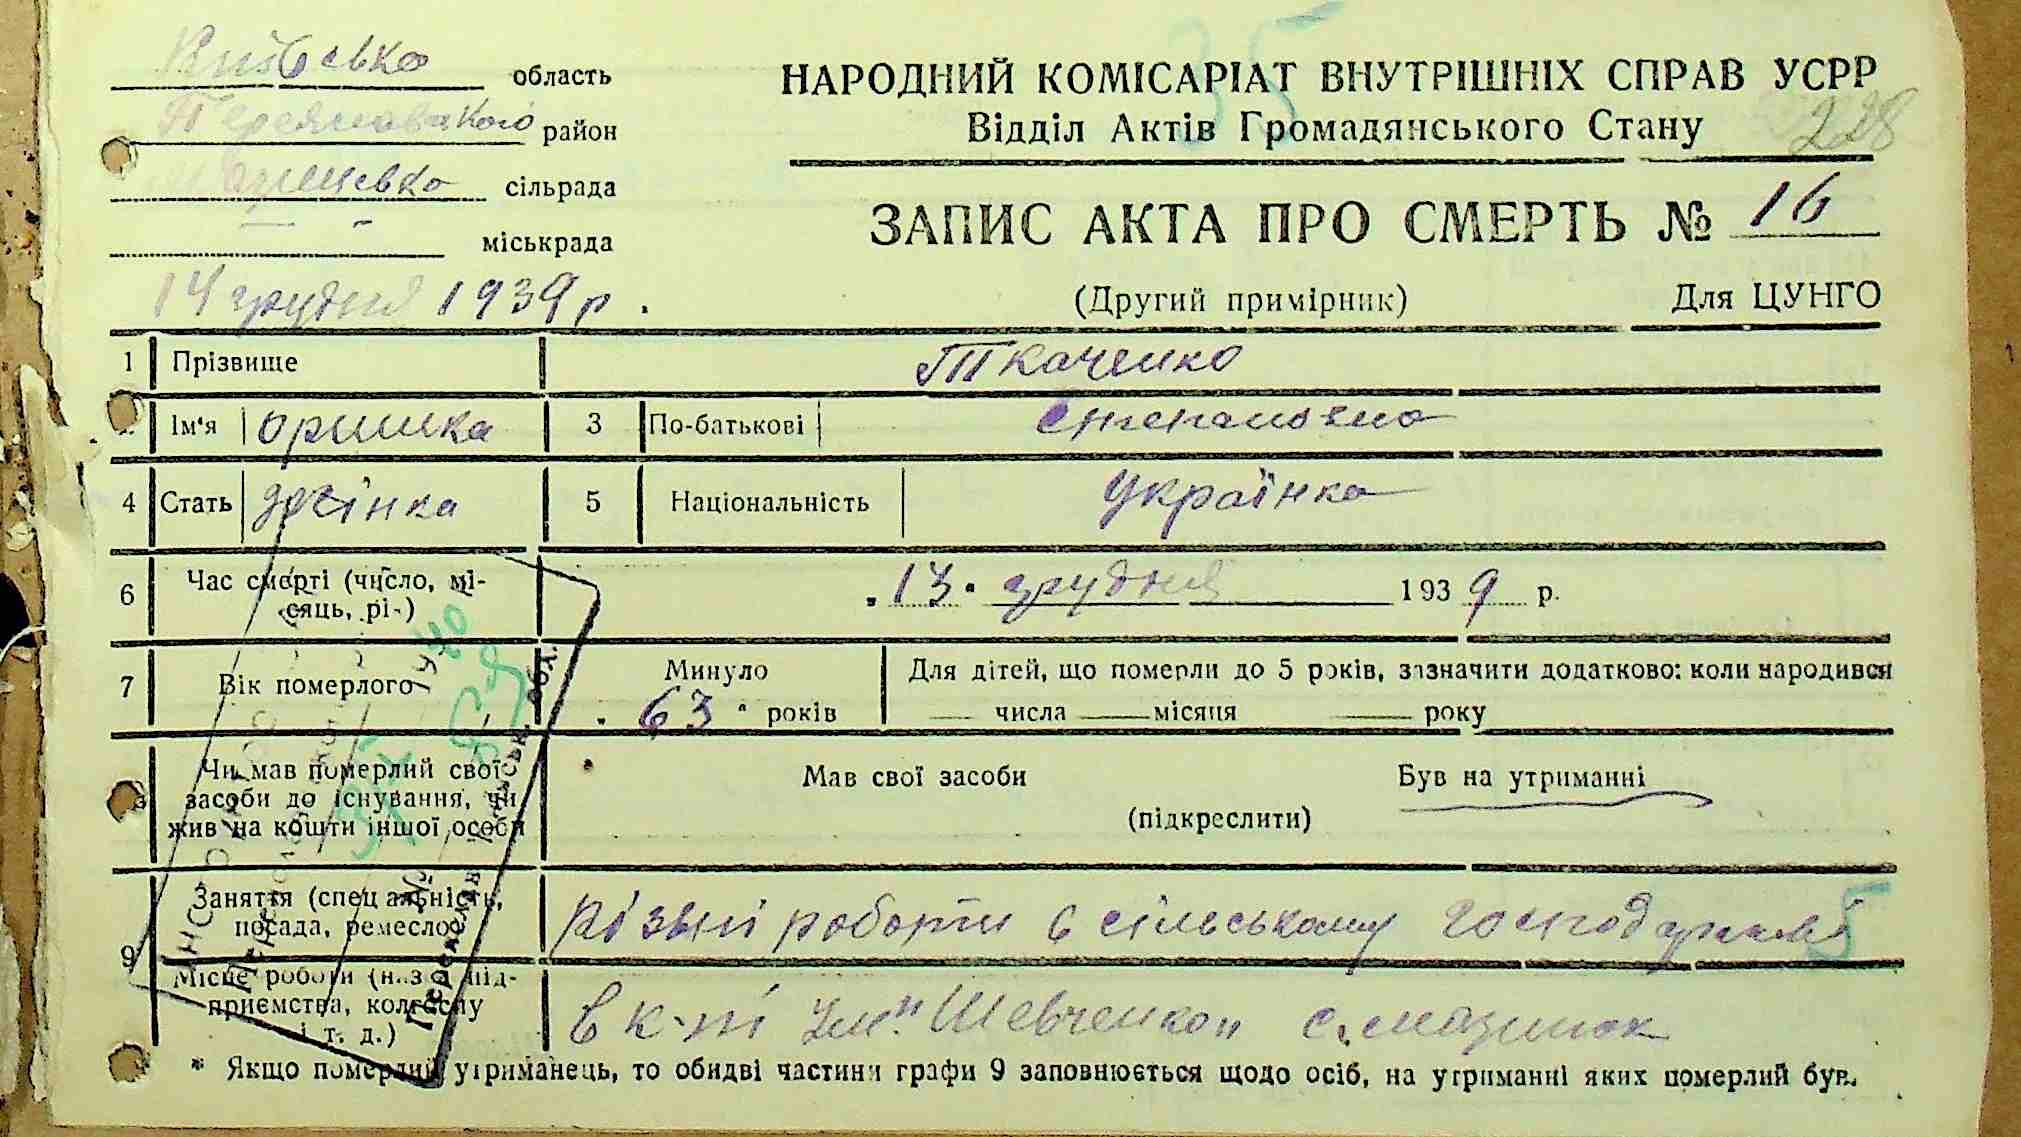 Київська область
Переяславського район
сільрада
міськрада
14 грудня 1939 р.
35
НАРОДНИЙ КОМІСАРІАТ ВНУТРІШНІХ СПРАВ УСРР
Відділ Актів Громадянського Стану
228
ЗАПИС АКТА ПРО СМЕРТЬ № 16
(Другий примірник) Для ЦУНГО
1 Прізвище Ткаченко
Ім'я Оришка 3 По-батькові Степановна
4 Стать жінка 5 Національність Українка
6 Час смерті (число, мі-
сяць, рі-) „13" грудня 1939 р.
7 Вік померлого Минуло „63" років Для дітей, що померли до 5 років, зазначити додатково: коли народився
— числа — місяця — року
Чи мав померлий свої
засоби до існування, чи
жив на кошти іншої особи
Мав свої засоби Був на утриманні
(підкреслити)
9 Заняття (спеціальність,
посада, ремесло)
Різні роботи в сільському господарстві
5
Місце роботи (назва під-
приємства, колгоспу
і т. д.)
в к-пі їм." Шевченко"
* Якщо померлий утриманець, то обидві частини графи 9 заповнюється щодо осіб, на утриманні яких померлий був.